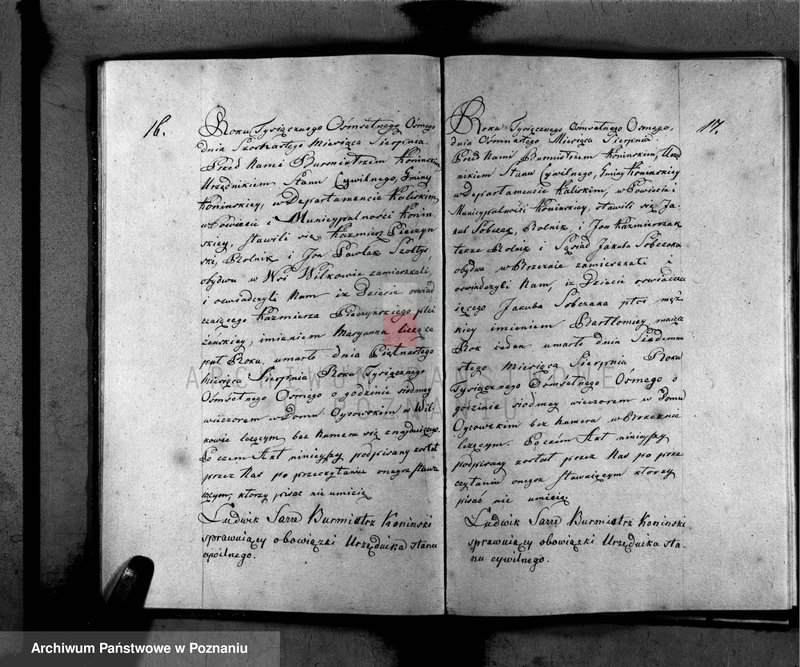 16.
Roku Tysiącznego Ośmsetnego Osmego
dnia Szesnastego Miesiąca Sierpnia.
Przed Nami Burmistrzem Konińskim
Urzędnikiem Stanu Cywilnego, Gminy
Konińskiey, w Departamencie Kaliskim,
w Powiecie i Municypalności Konin-
skiey, stawili się Kazmierz Pieczyn-
ski, Rolnik i Jan Pawlak Szołtys,
obydwa w Wsi Wilkowie zamieszkali,
i oswiadczyli Nam iż Dziecie oswiad
czaiącego Kazmierza Pieczynskiego płci
żeńskiey, imieniem Maryanna liczące
puł Roku, umarło dnia Piętnastego
miesiąca Sierpnia Roku Tysiącznego
Ośmsetnego Osmego o godzinie siodmey
wieczorem w Domu Oycowskim w Wil-
kowie leżącym bez numeru się znayduiącym.
Po czem Akt ninieyszy podpisany został
przez Nas po przeczytaniu onegoż stawa
iącym, ktorzy pisać nie umieią
Ludwik Sarre Burmistrz Koninski
sprawuiący obowiązki Urzędnika stanu
cywilnego.
17.
Roku Tysiącznego Ośmsetnego Osmego,
dnia Ośmnastego Miesiąca Sierpnia.
Przed Nami Burmistrzem Konińskim, Urzę
dnikiem Stanu Cywilnego, Gminy Konińskiey
w Departamencie Kaliskim, w Powiecie i
Municypalności Konińskiey, stawili się Ja
kub Sobczak, Rolnik, i Jan Kazmierczak
także Rolnik i Sąsiad Jakuba Sobczaka
obydwa w zamieszkali i
oswiadczyli Nam, iż Dziecie oswiadcza
iącego Jakuba Sobczaka płci męz
kiey imieniem Bartłomiey maiące
Rok ieden umarło dnia Siedemna
stego miesiąca Sierpnia Roku
Tysiącznego Osmsetnego Osmego o
godzinie siodmey wieczorem w Domu
Oycowskim bez numeru w
leżącym. Po czem Akt ninieyszy
podpisany został przez Nas po prze
czytaniu onegoż stawaiącym ktorzy
pisać nie umieią
Ludwik Sarre Burmistrz Koninski
sprawuiący obowiązki Urzędnika sta-
nu cywilnego.
Archiwum Państwowe w Poznaniu